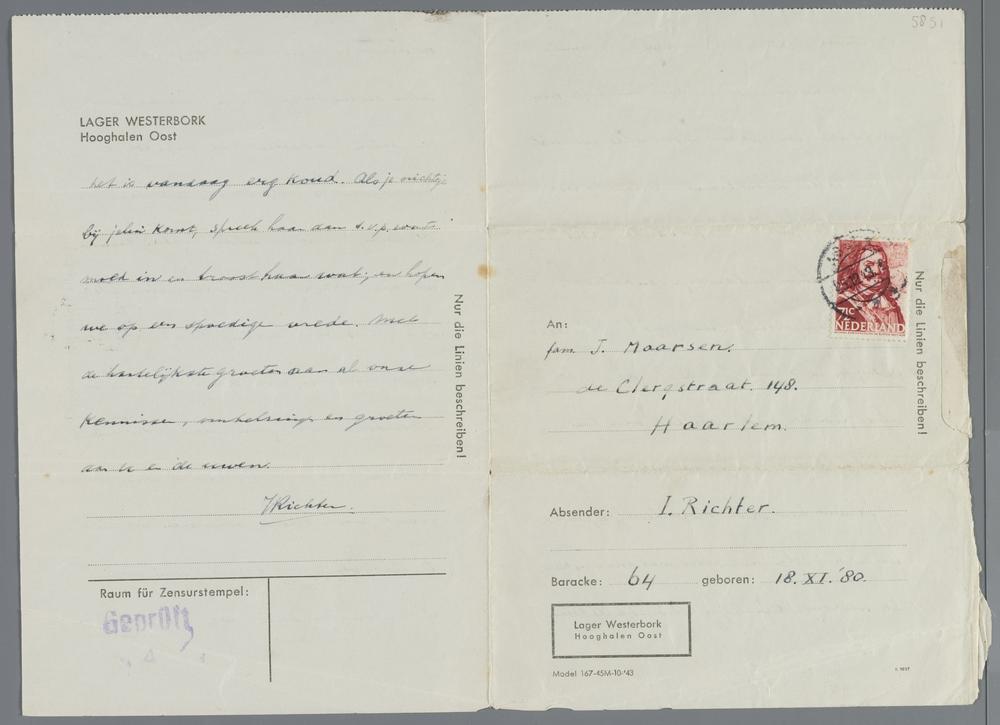 5851
LAGER WESTERBORK
Hooghalen Oost
het is vandaag erg koud. Als je nichtje
bij jelui komt, spreek haar aan s.v.p.
moed in en troost haar wat, en hopen
we op een spoedige vrede. Met
de hartelijkste groeten van al onze
kennissen, omhelzing en groeten
aan U en de uwen.
IRichter.
Nur die Linien beschreiben!
Raum für Zensurstempel:
Geprüft
7½C
NEDERLAND
An:
fam J. Maarsen.
de Clerqstraat. 148.
Haarlem.
Nur die Linien beschreiben!
Absender: I. Richter.
Baracke: 64 geboren: 18. XI. '80.
Lager Westerbork
Hooghalen Oost
Model 167-45M-10-'43